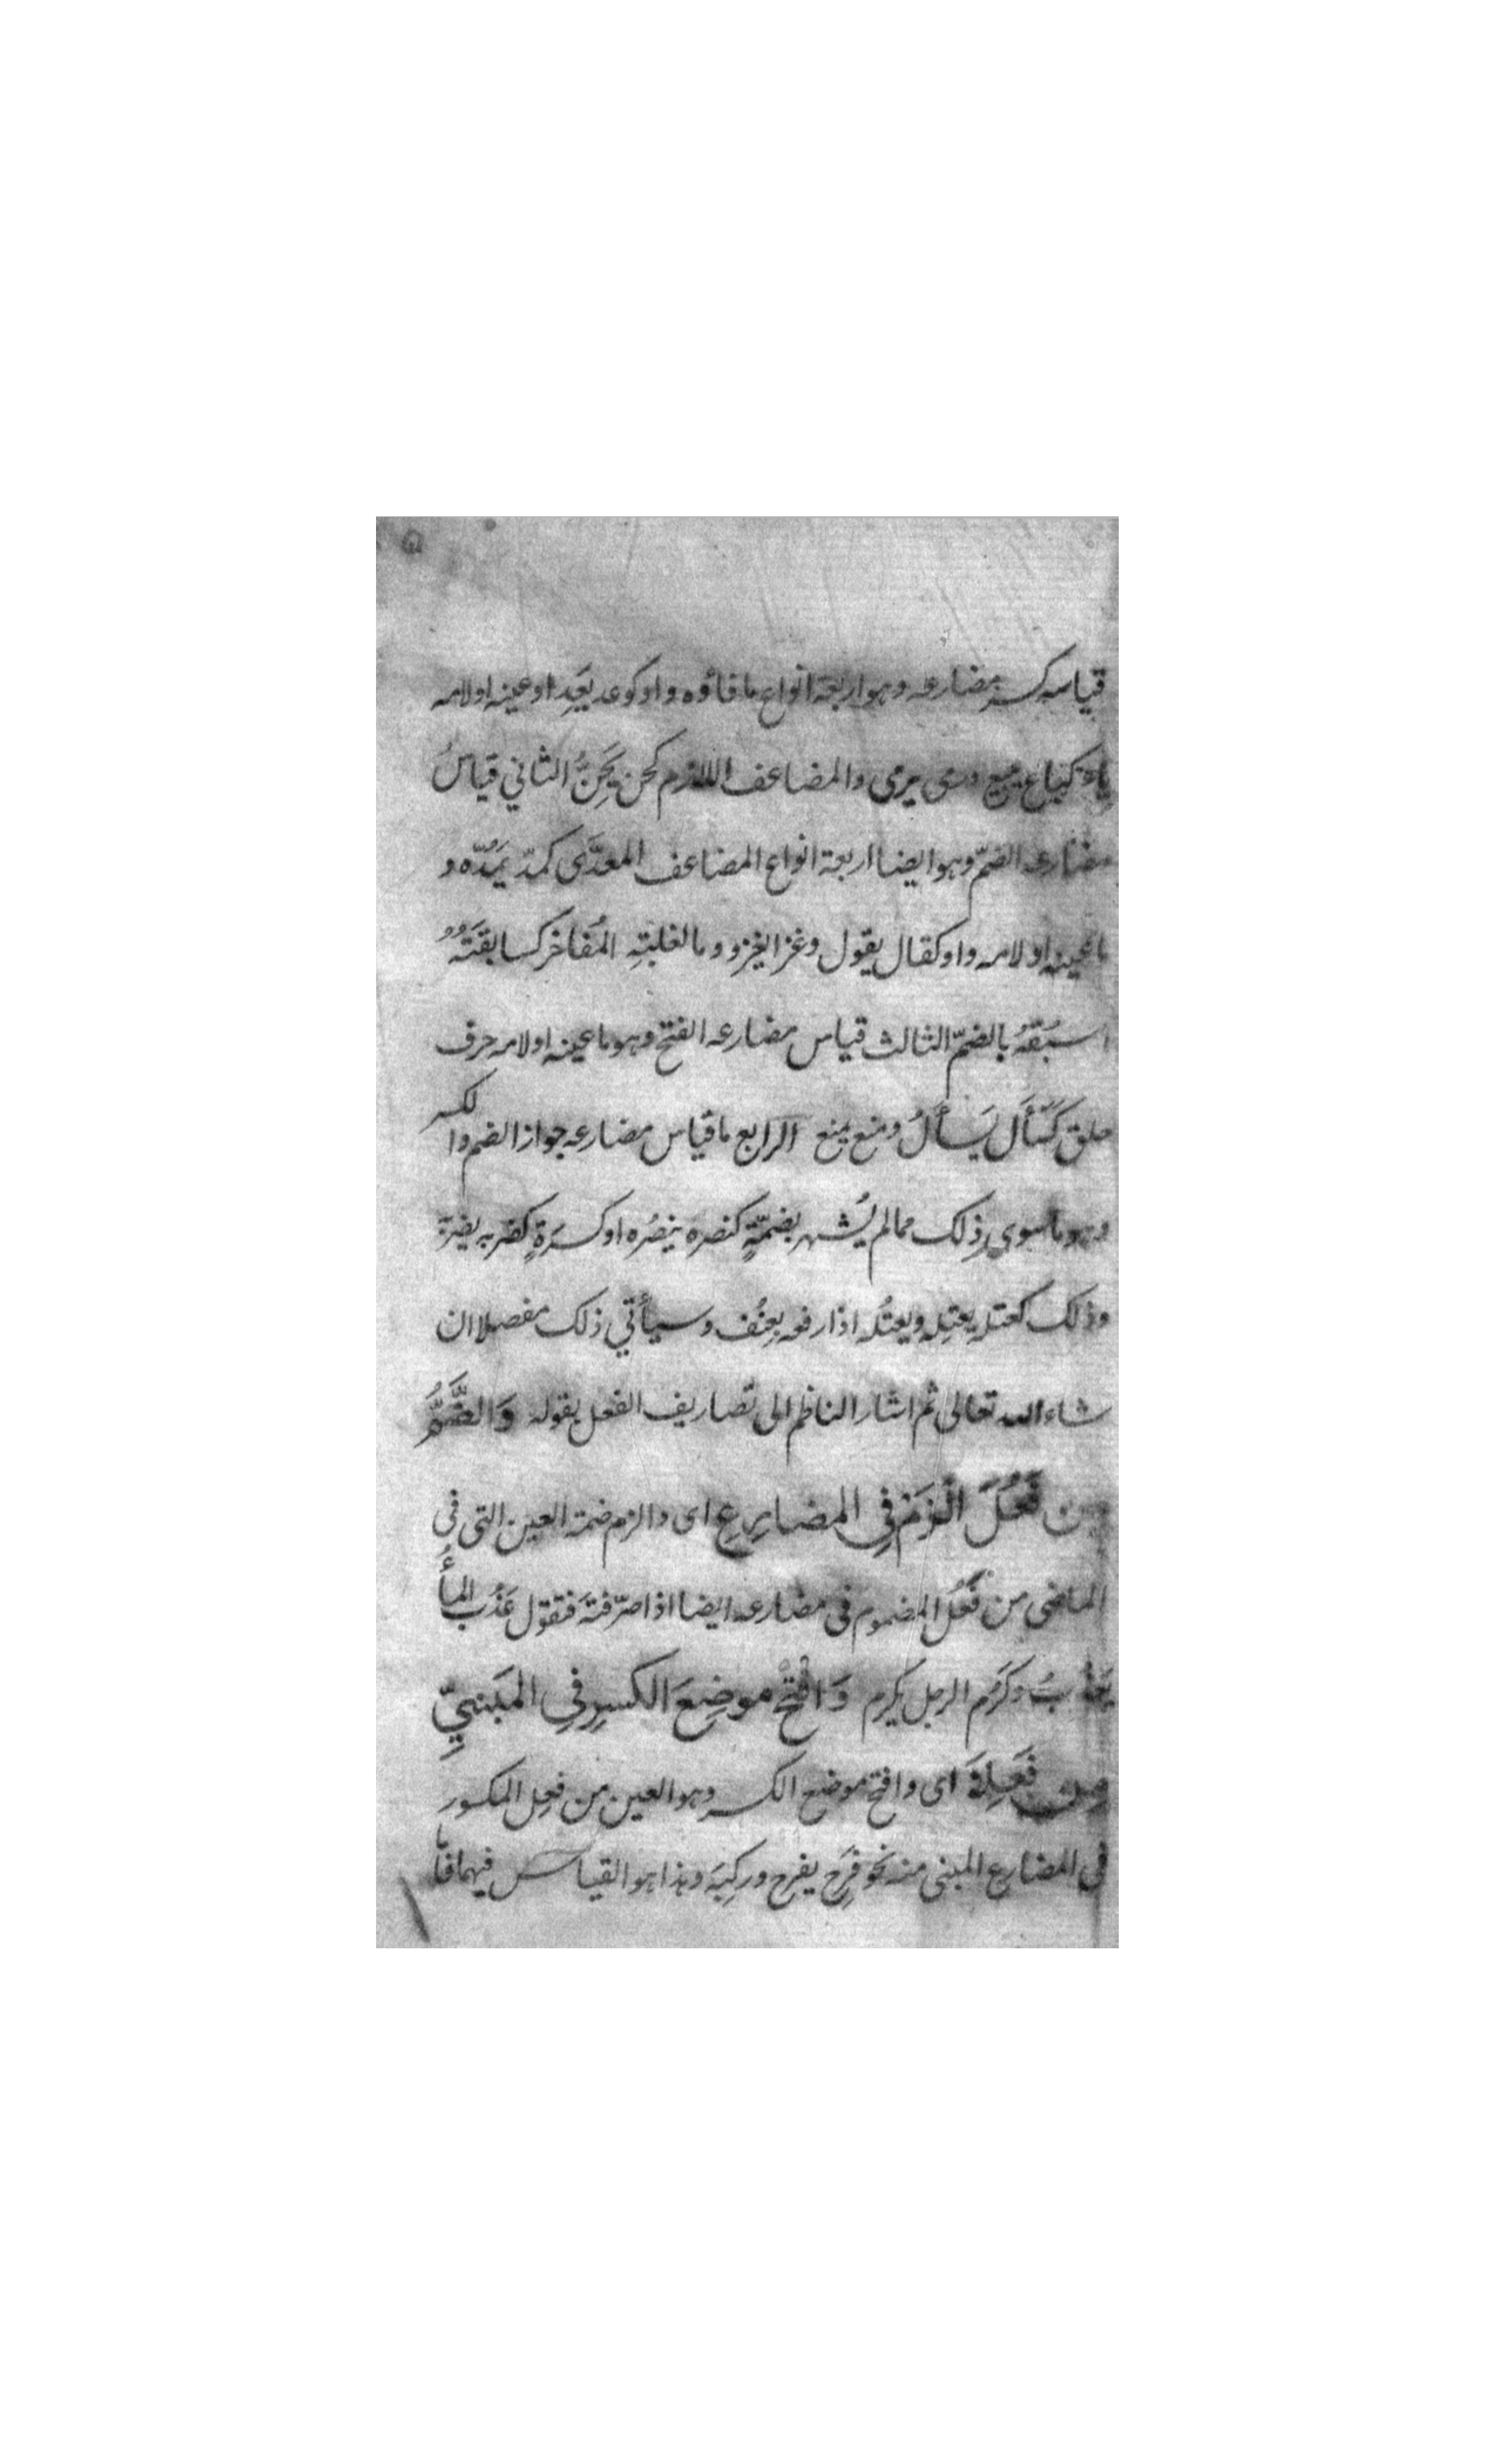 قياسه كسر مضارعه وهو اربعة انواع ما فاؤه واو كوعد يَعِد او عينه اولامه
ياء كباع يبيع ورمى يرمى والمضاعف اللازم كحن يَحِنُّ الثاني قياسُ
مضارعه الضمّ وهو ايضا اربعة انواع المضاعف المعدَّى كمدّ يَمُدّه و
ما عينه اولامه واو كقال يقول وغزا يغزو وما لغلبةِ المُفاخر كسابقتَهُ
اسبُقهُ بالضمّ الثالث قياس مضارعه الفتح وهو ما عينه اولامه حرف
حلق كَسَأَل يَسأَلُ ومنع يمنع الرابع ما قياس مضارعه جواز الضم والكسر
وهو ما سوى ذلك مما لم يُشهر بضمّةٍ كنصره ينصُره او كسرَةٍ كضربه يضربه
وذلك كعتله يعتِله ويعتُله اذا رفعه بعنُف وسيأتي ذلك مفصلا ان
شاء الله تعالى ثم اشار الناظم الى تصاريف الفعل بقوله وَالضَّمَّ
مِن فَعُلَ الْزَمْ فِي المضارِعِ اى والزم ضمة العين التى فى
الماضى من فَعُلَ المضموم فى مضارعه ايضا اذا صرّفتَه فتقول عَذُب الماءُ
يَعْذُبُ وكرُم الرجل يكرم وَافْتَحْ موضِعَ الكسرِ فِي المَبنيِّ
مِن فَعِلَهْ اى وافتح موضع الكسر وهو العين من فعِل المكسور
فى المضارع المبنى منه نحو فَرِح يفرح وركِبَه وهذا هو القياس فيهما فا